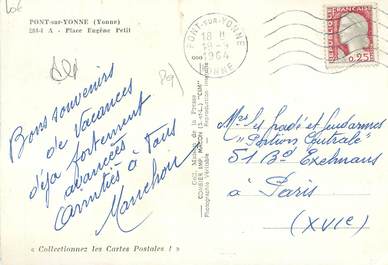 PONT-sur-YONNE (Yonne)
288-4 A - Place Eugène Petit
Bons souvenirs
de vacances
déja fortement
avancées
Amitiés à tous
Manchon
« Collectionnez les Cartes Postales ! »
Coll. Maison de la Presse
COMBIER IMP. MACON (S.-et-L.) "CIM"
Photographie Véritable - Reproduction interdite
PONT-SUR-YONNE
18 H
18-
1964
YONNE
0,25
Mrs les gradés et gendarmes
"Portion Centrale"
51 Bd Exelmans
à Paris
(XVIe)